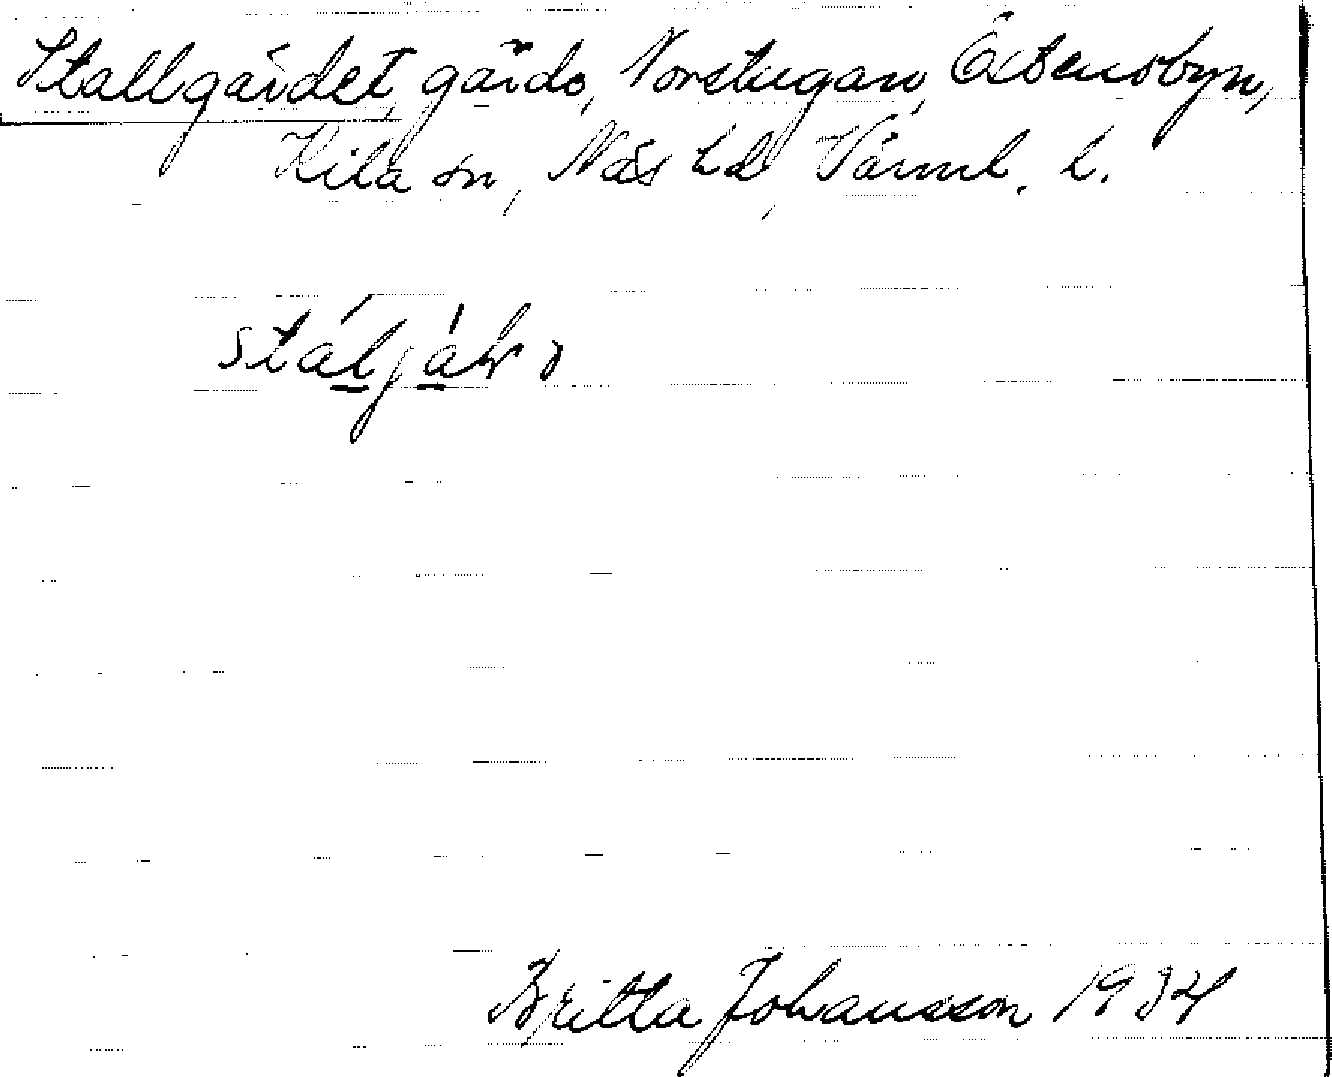 Stallgärdet, gärde, Norstugan, Östensbyn,
Kila sn, Näs hd, Värml. l.
Britta Johansson 1934